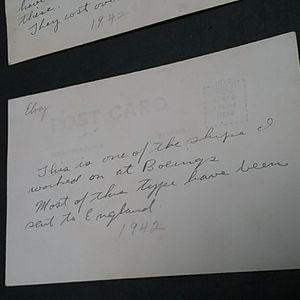 have
these.
They cost over
1942
Elroy
POST CARD
This is one of the ships I
worked on at Boeings
Most of this type have been
sent to England
1942